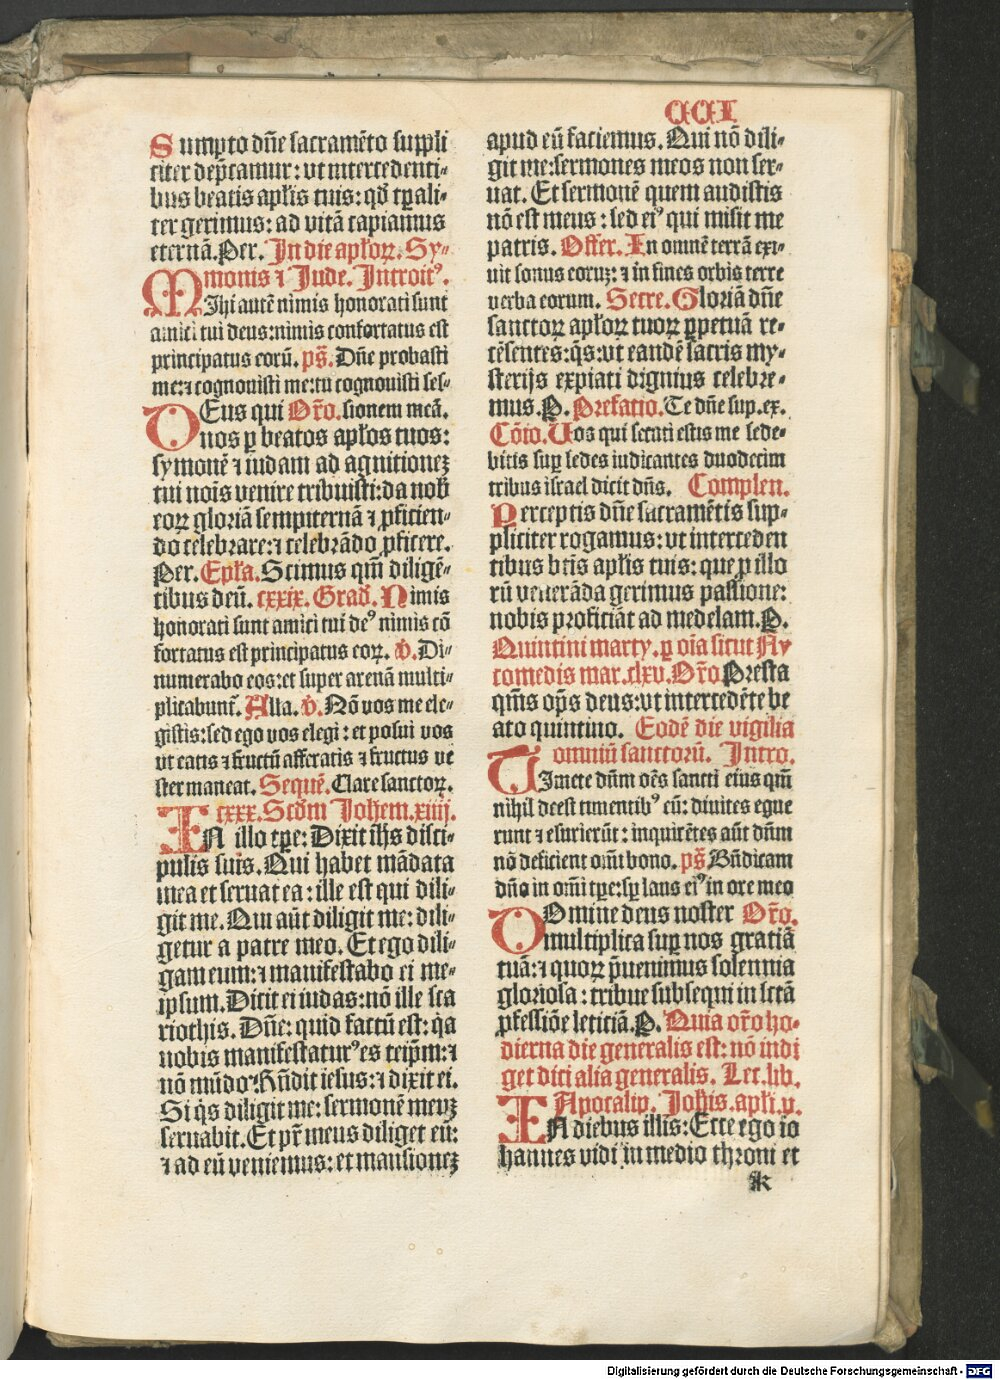 CCI
Sumpto dñe sacramẽto suppli
citer dep̃camur: vt intercedenti-
bus beatis apl̃is tuis: qđ tꝑali-
ter gerimus: ad vitã capiamus
eternã. Per. In die apl̃oꝝ. Sy-
monis ⁊ Jude. Introitꝰ.
MIhi autẽ nimis honorati sunt
amici tui deus: nimis confortatus est
principatus eorũ. p̃s. Dñe probasti
me: ⁊ cognouisti me: tu cognouisti ses-
DEus qui Or̃o. sionem meã.
nos ꝑ beatos apl̃os tuos:
symonẽ ⁊ iudam ad agnitionez
tui noĩs venire tribuisti: da nob̃
eoꝝ gloriã sempiternã ⁊ ꝓficien-
do celebrare: ⁊ celebrãdo ꝓficere.
Per. Ep̃la. Scimus qm̃ diligẽ-
tibus deũ. cxxix. Grad̃. Nimis
honorati sunt amici tui deꝰ nimis cõ
fortatus est principatus eoꝝ. v̓. Di-
numerabo eos: et super arenã multi-
plicabunt̃. Alla. v̓. Nõ vos me ele-
gistis: sed ego vos elegi: et posui vos
vt eatis ⁊ fructũ afferatis ⁊ fructus ve
ster maneat. Sequẽ. Clare sanctoꝝ.
cxxx. Scd̃m Joh̃em. xiiij.
IN illo tꝑe: Dixit ih̃s disci-
pulis suis. Qui habet mãdata
mea et seruat ea: ille est qui dili-
git me. Qui aũt diligit me: dili-
getur a patre meo. Et ego dili-
gam eum: ⁊ manifestabo ei me-
ipsum. Dicit ei iudas: nõ ille sca
riothis. Dñe: quid factũ est: q̃a
nobis manifestaturꝰ es teip̃m: ⁊
nõ mũdo? Rñdit iesus: ⁊ dixit ei.
Si q̃s diligit me: sermonẽ meuz
seruabit. Et pr̃ meus diliget eũ:
⁊ ad eũ veniemus: et mansionez
apud eũ faciemus. Qui nõ dili-
git me: sermones meos non ser-
uat. Et sermonẽ quem audistis
nõ est meus: sed eiꝰ qui misit me
patris. Offer. In omnẽ terrã exi-
uit sonus eoruz: ⁊ in fines orbis terre
verba eorum. Secre. Gloriã dñe
sanctoꝝ apl̃oꝝ tuoꝝ ꝑpetuã re-
cẽsentes: q̃s: vt eandẽ sacris my-
sterijs expiati dignius celebre-
mus. P. Prefatio. Te dñe sup. ex.
Cõio. Uos qui secuti estis me sede-
bitis suꝑ sedes iudicantes duodecim
tribus israel dicit dñs. Complen.
Perceptis dñe sacramẽtis sup-
pliciter rogamus: vt interceden
tibus btĩs apl̃is tuis: que ꝓ illo
rũ venerãda gerimus passione:
nobis proficiãt ad medelam. P.
Quintini marty. ꝑ oĩa sicut Ny
comedis mar. clxv. Or̃o Presta
qm̃s op̃s deus: vt intercedẽte be
ato quintino. Eodẽ die vigilia
omniũ sanctorũ. Intro.
TImete dñm oẽs sancti eius qm̃
nihil deest timentibꝰ eũ: diuites egue
runt ⁊ esurierũt: inquirẽtes aũt dñm
nõ deficient om̃i bono. p̃s. Bñdicam
dño in om̃i tꝑe: sꝑ laus eiꝰ in ore meo
DOmine deus noster Or̃o.
multiplica suꝑ nos gratiã
tuã: ⁊ quoꝝ p̃uenimus solennia
gloriosa: tribue subsequi in sctã
ꝓfessiõe letitiã. P. Quia or̃o ho-
dierna die generalis est: nõ indi
get dici alia generalis. Lec. lib.
Apocalip. Joh̃is. apl̃i. v.
IN diebus illis: Ecce ego io
hannes vidi in medio throni et
k
Digitalisierung gefördert durch die Deutsche Forschungsgemeinschaft - DFG